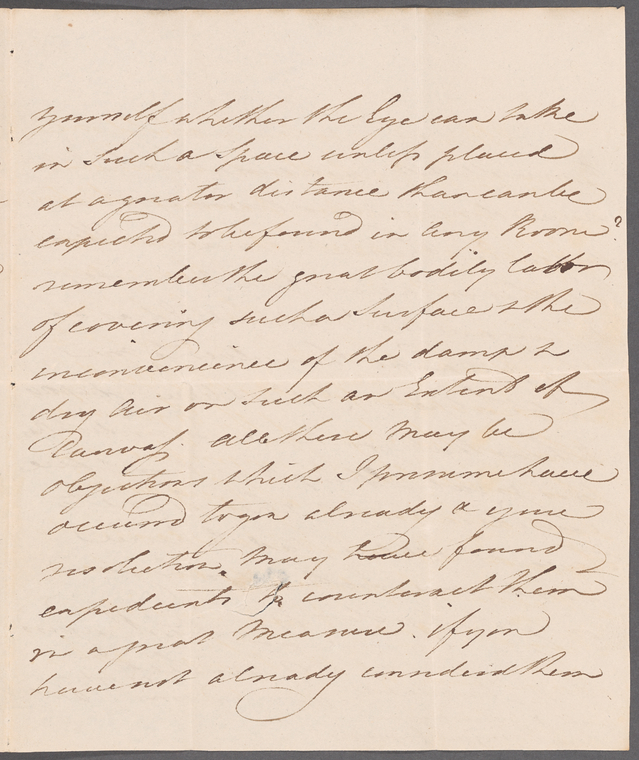 yourself whether the Eye can take
in such a Space unless placed
at a greater distance than can be
expected to be found in any Room?
remember the great bodily labor
of covering such a Surface & the
inconvenience of the damp &
dry Air on such an Extent of
Canvas. all these may be
objections which I presume have
occurred to you already & your
resolution may have found
expedients to counteract them
in a great Measure. if you
have not already considered them